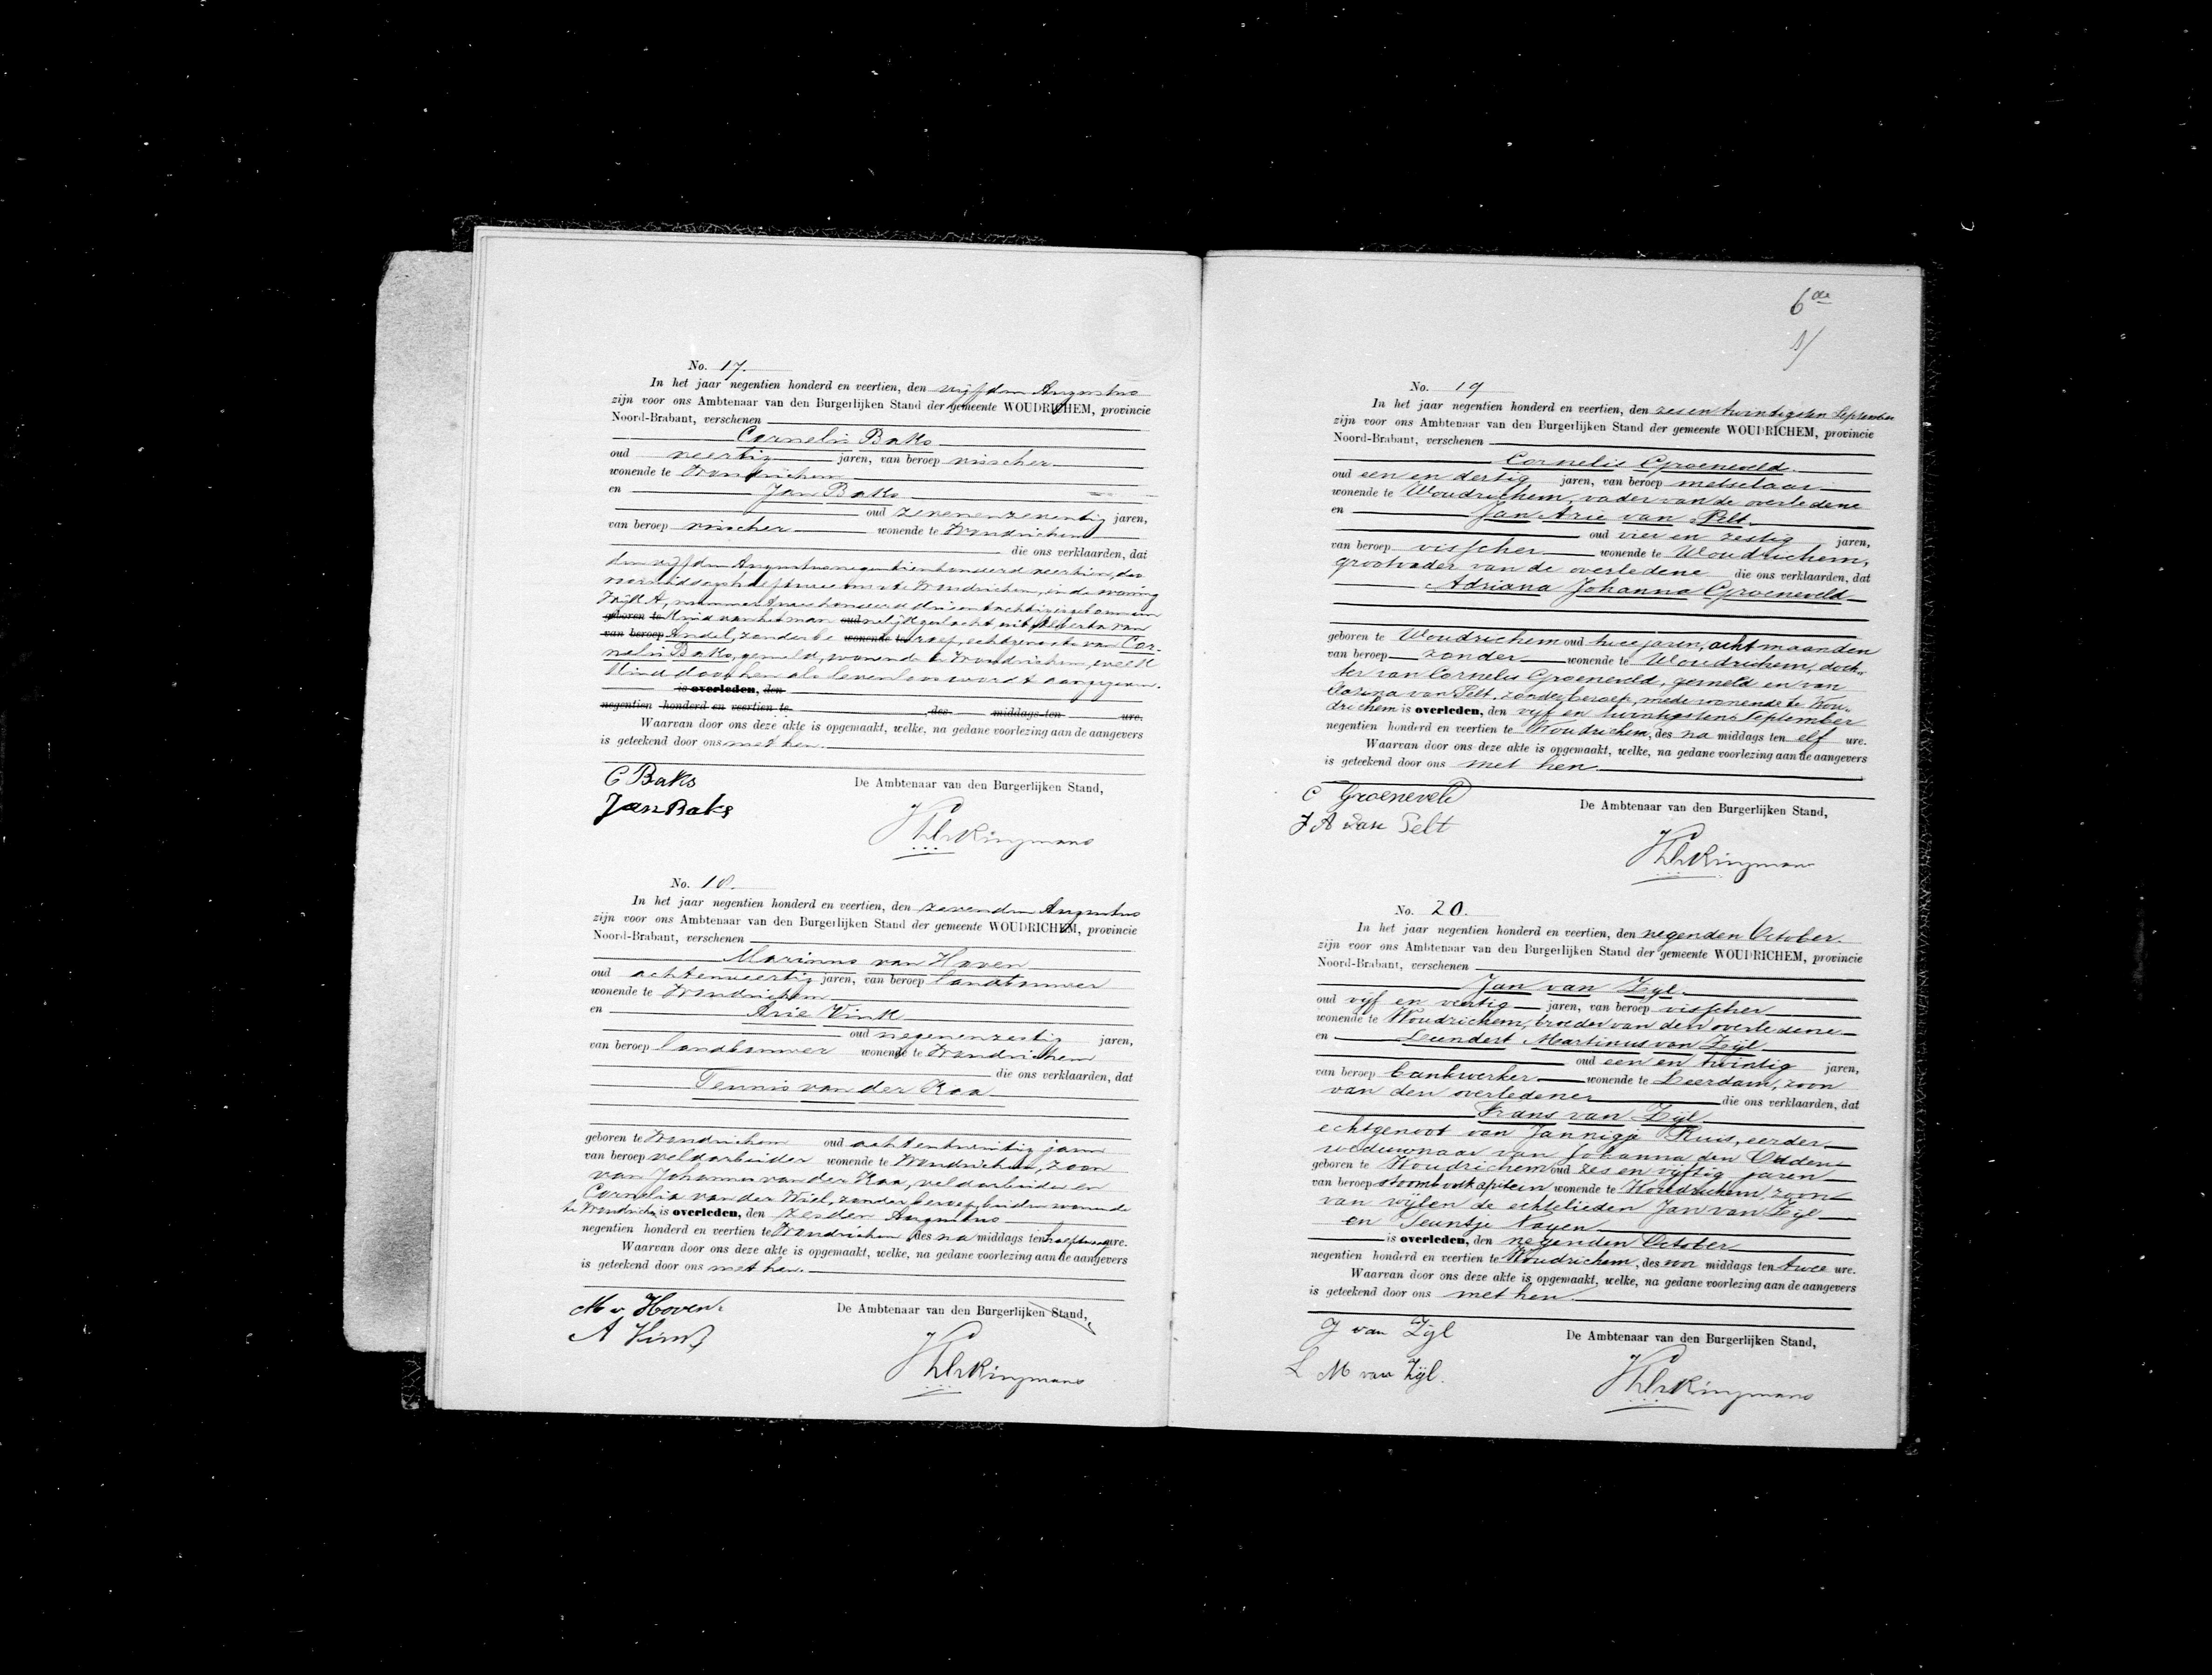 No. 17.
In het jaar negentien honderd en veertien, den vijfden Augustus
zijn voor ons Ambtenaar van den Burgerlijken Stand der gemeente WOUDRICHEM, provincie
Noord-Brabant, verschenen
Cornelis Baks
oud veertig jaren, van beroep visscher
wonende te Woudrichem
en Jan Baks
oud zevenenzeventig jaren,
van beroep visscher wonende te Woudrichem
die ons verklaarden, dat
den vijfden Augustus negentienhonderd veertien, des
voormiddags ten half twee ure te Woudrichem, in de woning
Wijk A, nummer tweehonderd drieentachtig is geboren een
geboren te kind van het man oud nelijk geslacht, uit Alberta van
van beroep Andel, zonder be wonende te roep, echtgenoote van Cor-
nelis Baks, gemeld, wonende te Woudrichem, welk
kind door hen als levenloos wordt aangegeven.
is overleden, den
negentien honderd en veertien te , des middags ten ure.
Waarvan door ons deze akte is opgemaakt, welke, na gedane voorlezing aan de aangevers
is geteekend door ons met hen.
C Baks
De Ambtenaar van den Burgerlijken Stand,
Jan Baks
No. 18.
In het jaar negentien honderd en veertien, den zevenden Augustus
zijn voor ons Ambtenaar van den Burgerlijken Stand der gemeente WOUDRICHEM, provincie
Noord-Brabant, verschenen
Marinus van Hoven
oud achtenveertig jaren, van beroep landbouwer
wonende te Woudrichem
en Arie Vink
oud negenenzestig jaren,
van beroep landbouwer wonende te Woudrichem
die ons verklaarden, dat
Teunis van der Kaa
geboren te Woudrichem oud achtentwintig jaren
van beroep veldarbeider wonende te Woudrichem, zoon
van Johannes van der Kaa, veldarbeider en
Cornelia van der Wiel, zonder beroep, beiden wonende
te Woudrichem is overleden, den zesden Augustus
negentien honderd en veertien te Woudrichem des na middags ten half twee ure.
Waarvan door ons deze akte is opgemaakt, welke, na gedane voorlezing aan de aangevers
is geteekend door ons met hen.
M v Hoven.
De Ambtenaar van den Burgerlijken Stand,
A Vink
6de
No. 19
In het jaar negentien honderd en veertien, den zes en twintigsten September
zijn voor ons Ambtenaar van den Burgerlijken Stand der gemeente WOUDRICHEM, provincie
Noord-Brabant, verschenen
Cornelis Groeneveld
oud een en dertig jaren, van beroep metselaar
wonende te Woudrichem, vader van de overledene
en Jan Arie van Pelt
oud vier en zestig jaren,
van beroep visscher wonende te Woudrichem,
grootvader van de overledene die ons verklaarden, dat
Adriana Johanna Groeneveld
geboren te Woudrichem oud twee jaren, acht maanden
van beroep zonder wonende te Woudrichem, doch-
ter van Cornelis Groeneveld, gemeld en van
Cosina van Pelt, zonder beroep, mede wonende te Wou-
drichem is overleden, den vijf en twintigsten September
negentien honderd en veertien te Woudrichem, des na middags ten elf ure.
Waarvan door ons deze akte is opgemaakt, welke, na gedane voorlezing aan de aangevers
is geteekend door ons met hen.
C Groeneveld
De Ambtenaar van den Burgerlijken Stand,
J A van Pelt
No. 20.
In het jaar negentien honderd en veertien, den negenden October.
zijn voor ons Ambtenaar van den Burgerlijken Stand der gemeente WOUDRICHEM, provincie
Noord-Brabant, verschenen
Jan van Zijl
oud vijf en veertig jaren, van beroep visscher
wonende te Woudrichem, broeder van den overledene
en Leendert Martinus van Zijl
oud een en twintig jaren,
van beroep bankwerker wonende te Leerdam, zoon
van den overledene die ons verklaarden, dat
Frans van Zijl
echtgenoot van Jannigje Kuis, eerder
weduwnaar van Johanna den Ouden
geboren te Woudrichem oud zes en vijftig jaren
van beroep stoombootkapitein wonende te Woudrichem, zoon
van wijlen de echtelieden Jan van Zijl
en Teuntje Nayen
is overleden, den negenden October
negentien honderd en veertien te Woudrichem, des voor middags ten twee ure.
Waarvan door ons deze akte is opgemaakt, welke, na gedane voorlezing aan de aangevers
is geteekend door ons met hen.
J van Zijl
De Ambtenaar van den Burgerlijken Stand,
L M van Zijl.